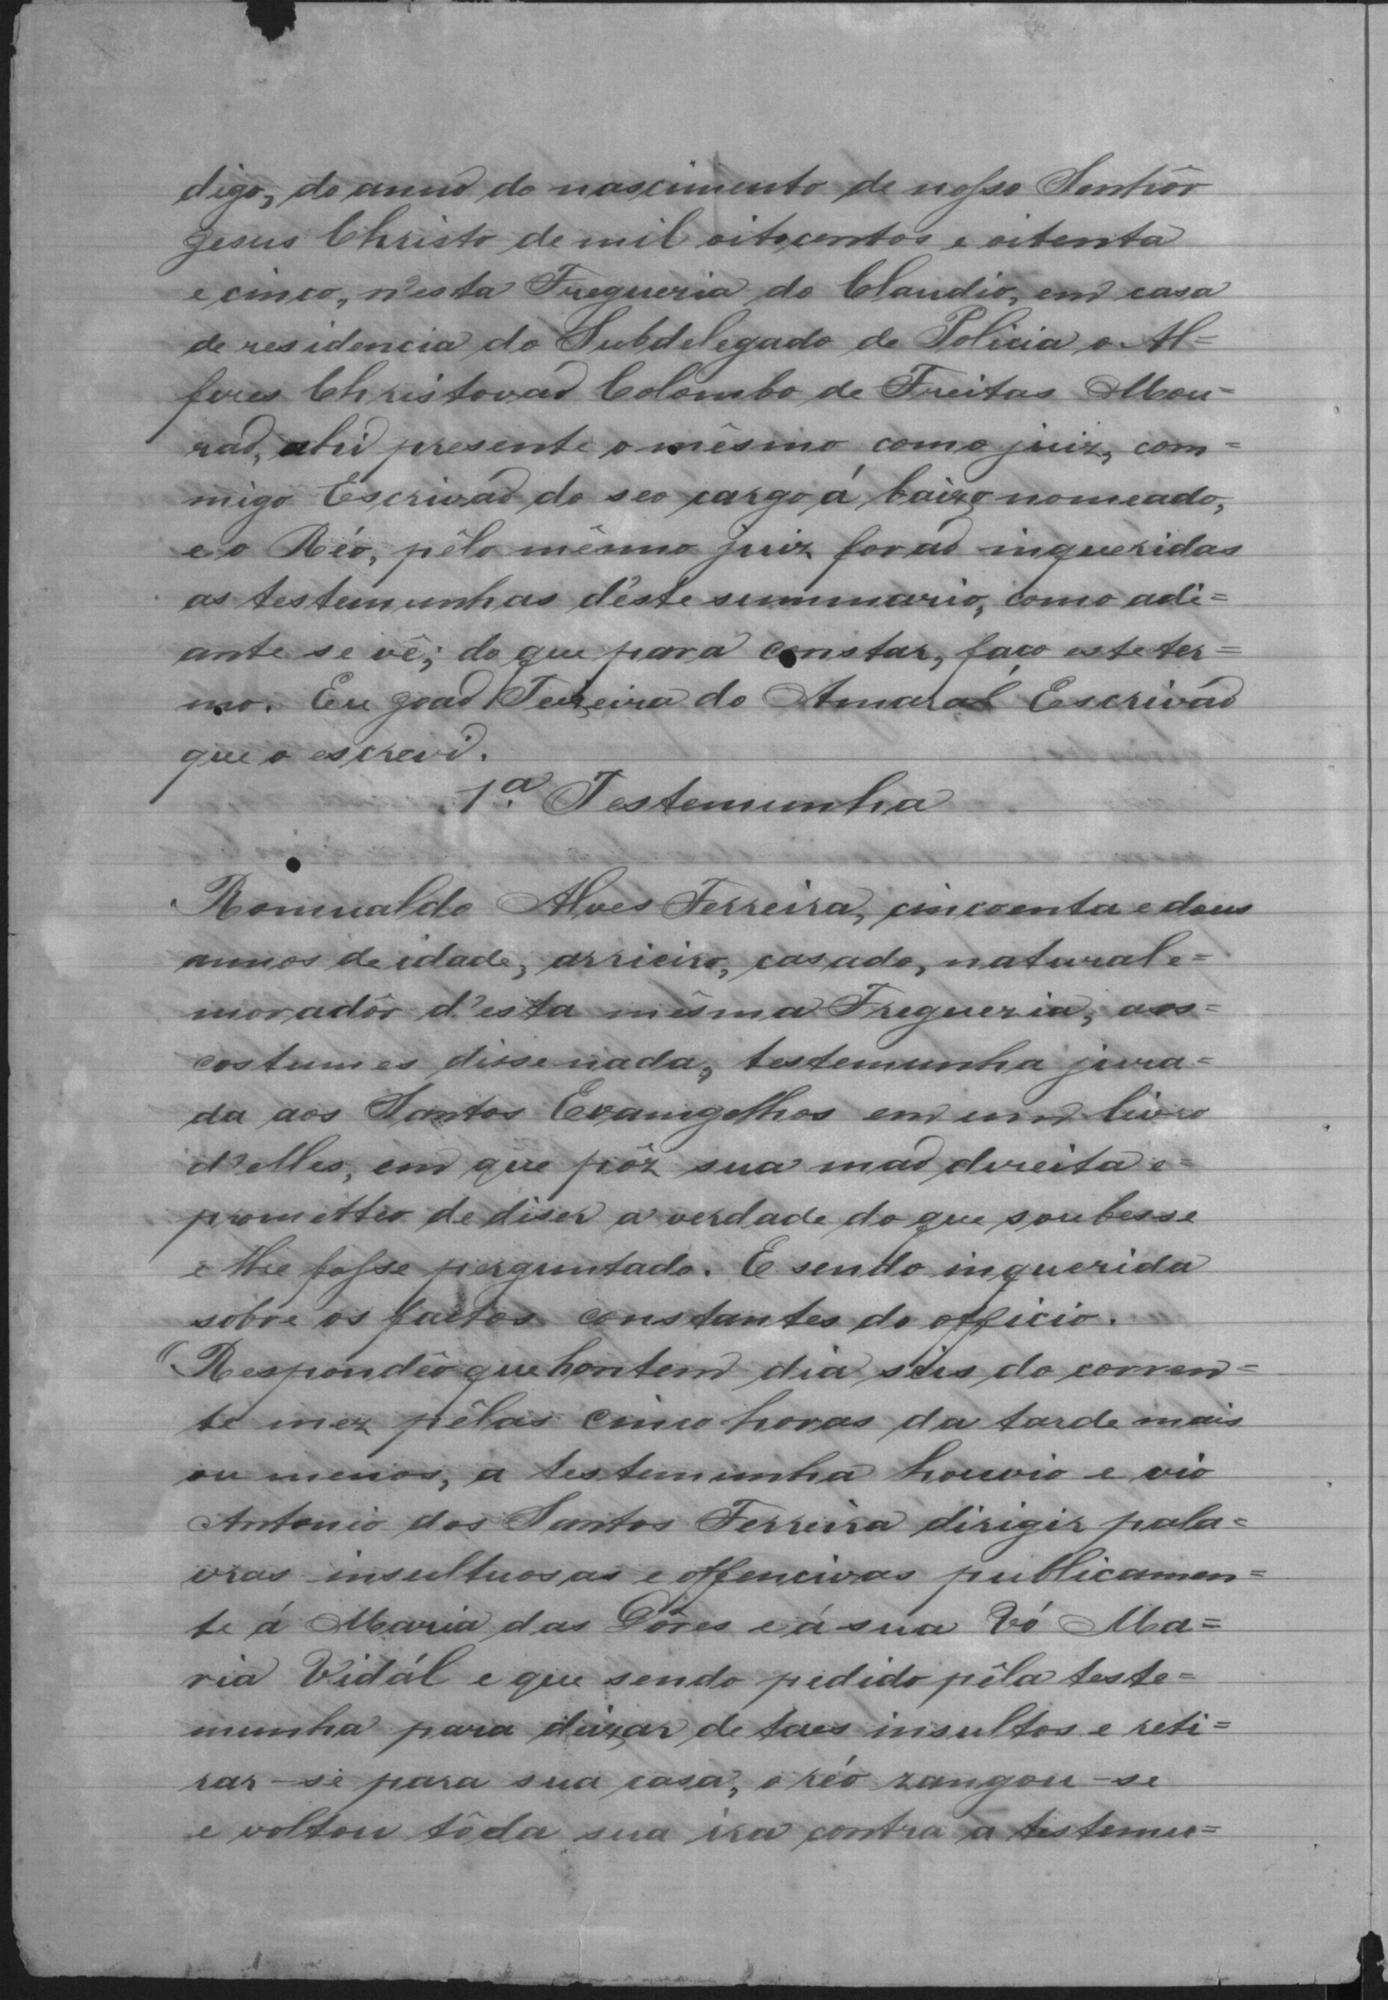 digo, do anno do nascimento de nosso Senhôr
Jesus Christo de mil oitocentos e oitenta
e cinco, n'esta Fregueria do Claudio, em casa
de residencia do Subdelegado de Policia o Al=
feres Christovaõ Colombo de Freitas Mou=
raõ, ahi presente o mêsmo como juiz, com=
migo Escrivaõ do seo cargo á baixo nomeado,
e o Réo, pêlo mêsmo juiz foraõ inqueridas
as testemunhas d'este summario, como adi=
ante se vê; do que para constar, faço este ter=
mo. Eu Joaõ Teixeira do Amaral Escrivaõ
que o escrevi.
1.ª Testemunha
Romualdo Alves Ferreira, cincoenta e dous
annos de idade, arrieiro, casado, natural e=
moradôr d'esta mêsma Fregueria, aos=
costumes disse nada, testemunha jura=
da aos Santos Evangelhos em um livro
d'elles, em que pôz sua maõ direita e=
prometteo de diser a verdade do que soubesse
e lhe fosse perguntado. E sendo inquerida
sobre os factos constantes do officio.
"Respondêo que hontem dia seis do corren=
te mez pêlas cinco horas da tarde mais
ou menos, a testemunha houvio e vio
Antonio dos Santos Ferreira dirigir pala=
vras insultuosas e offencivas publicamen=
te á Maria das Dôres e á sua Vó Ma=
ria Vidál e que sendo pedido pêla teste=
munha para deixar de taes insultos e reti=
rar-se para sua casa, o réo zangou-se
e voltou tôda sua ira contra a testemu=